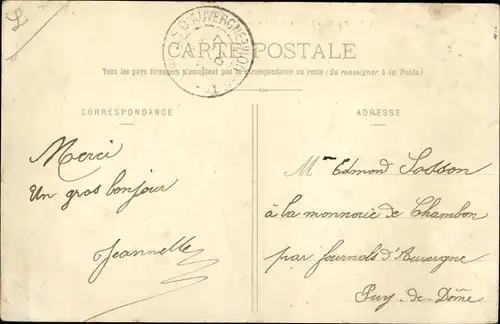 CARTE POSTALE
Tous les pays étrangers n'acceptent pas la correspondance au recto (Se renseigner à la Poste)
CORRESPONDANCE
ADRESSE
Merci
Un gros bonjour
Jeannelle
Mr Edmond Sasson
à la monnorie de Chambon
par Journols d'Auvergne
Puy-de-Dôme